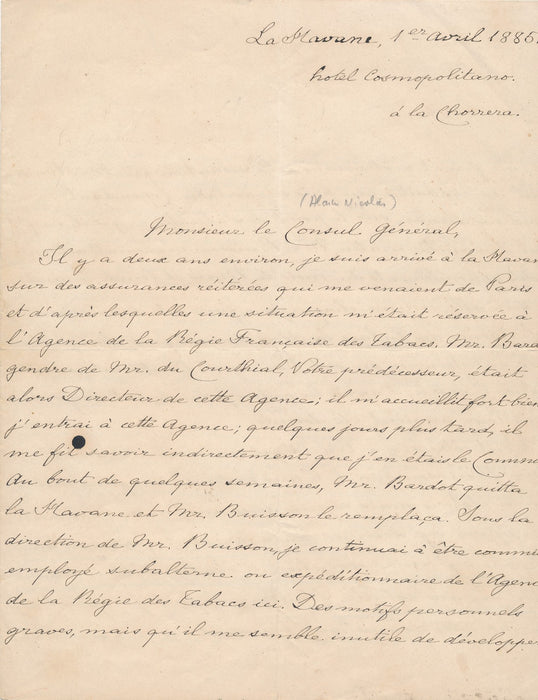 La Havane, 1er Avril 1886.
hotel Cosmopolitano.
á la Chorrera.
(Alain Nicolas)
Monsieur le Consul Général,
Il y a deux ans environ, je suis arrivé à la Havan
sur des assurances réitérées qui me venaient de Paris
et d'après lesquelles une situation m'était réservée à
l'Agence de la Régie Française des Tabacs. Mr. Bard
gendre de Mr. du Courthial, Votre prédécesseur, était
alors Directeur de cette Agence; il m'accueillit fort bien
j'entrai à cette Agence; quelques jours plus tard, il
me fit savoir indirectement que j'en étais le Commi
Au bout de quelques semaines, Mr. Bardot quitta
la Havane et Mr. Buisson le remplaça. Sous la
direction de Mr. Buisson, je continuai à être commi
employé subalterne ou expéditionnaire de l'Agen
de la Régie des Tabacs ici. Des motifs personnels
graves, mais qu'il me semble inutile de développe